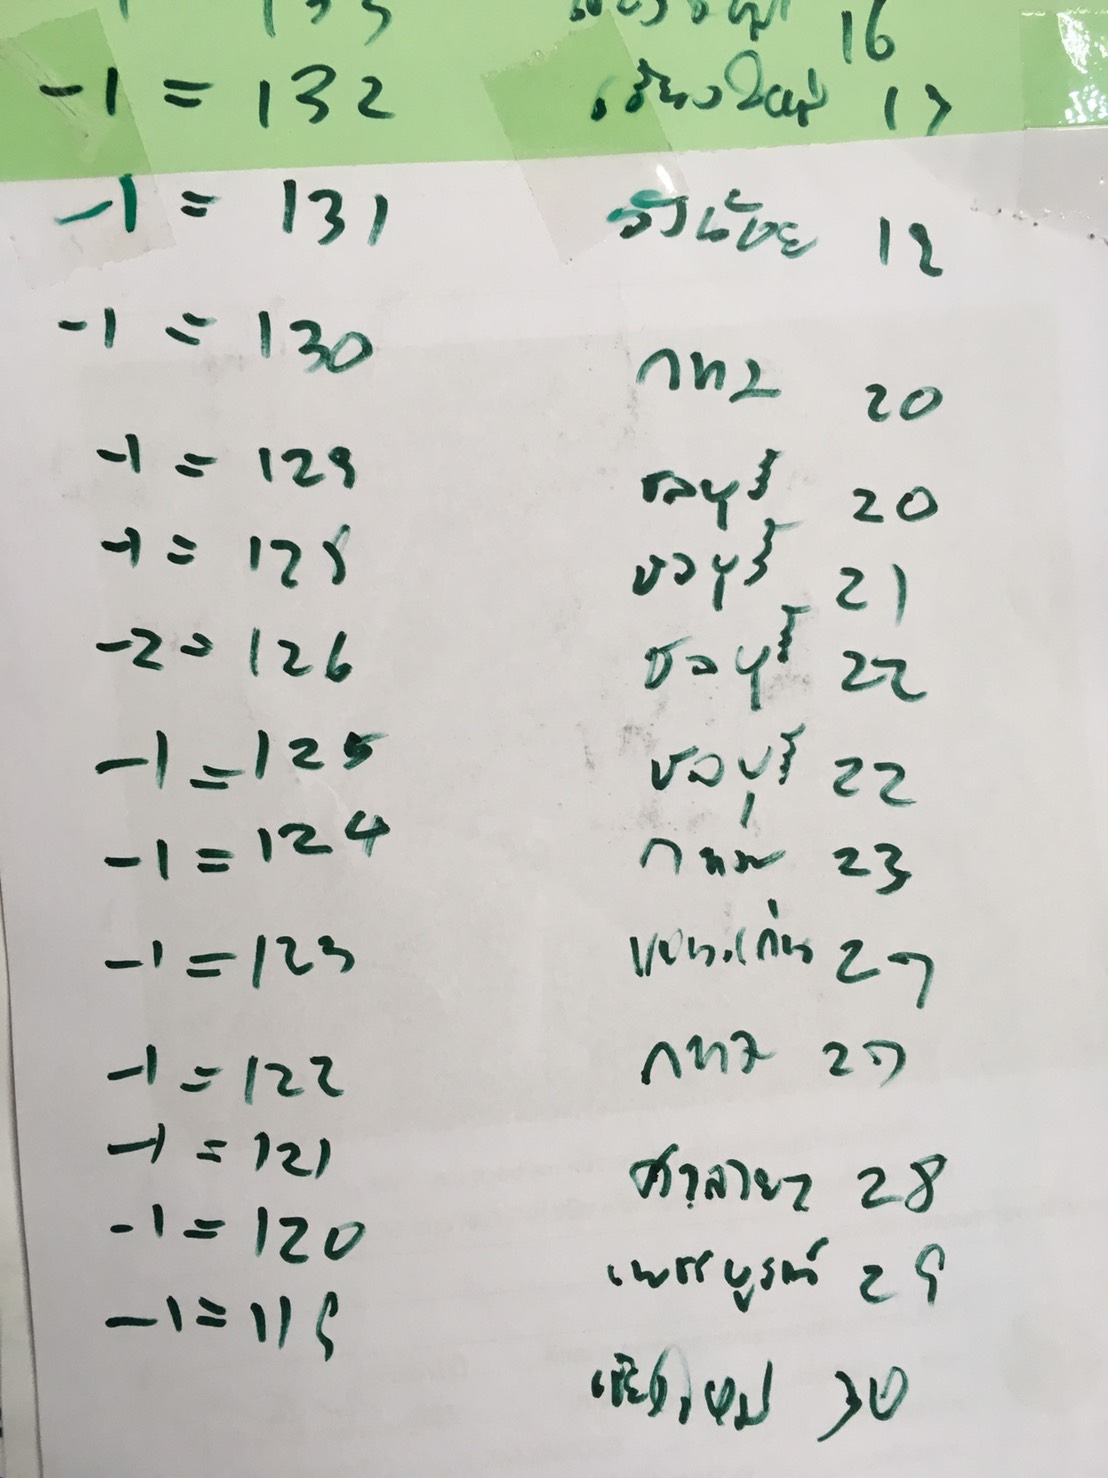 -1 133 16
-1 = 132 เชียงใหม่ 17
-1 = 131 วังน้อย 12
-1 = 130 กทม 20
-1 = 129 ชลบุรี 20
-1 = 128 ชลบุรี 21
-2 = 126 ชลบุรี 22
-1 = 125 ชลบุรี 22
-1 = 124 กทม 23
-1 = 123 ขอนแก่น 27
-1 = 122 กทม 27
-1 = 121 ศาลายา 28
-1 = 120 เพชรบูรณ์ 29
-1 = 119 เชียงใหม่ 30